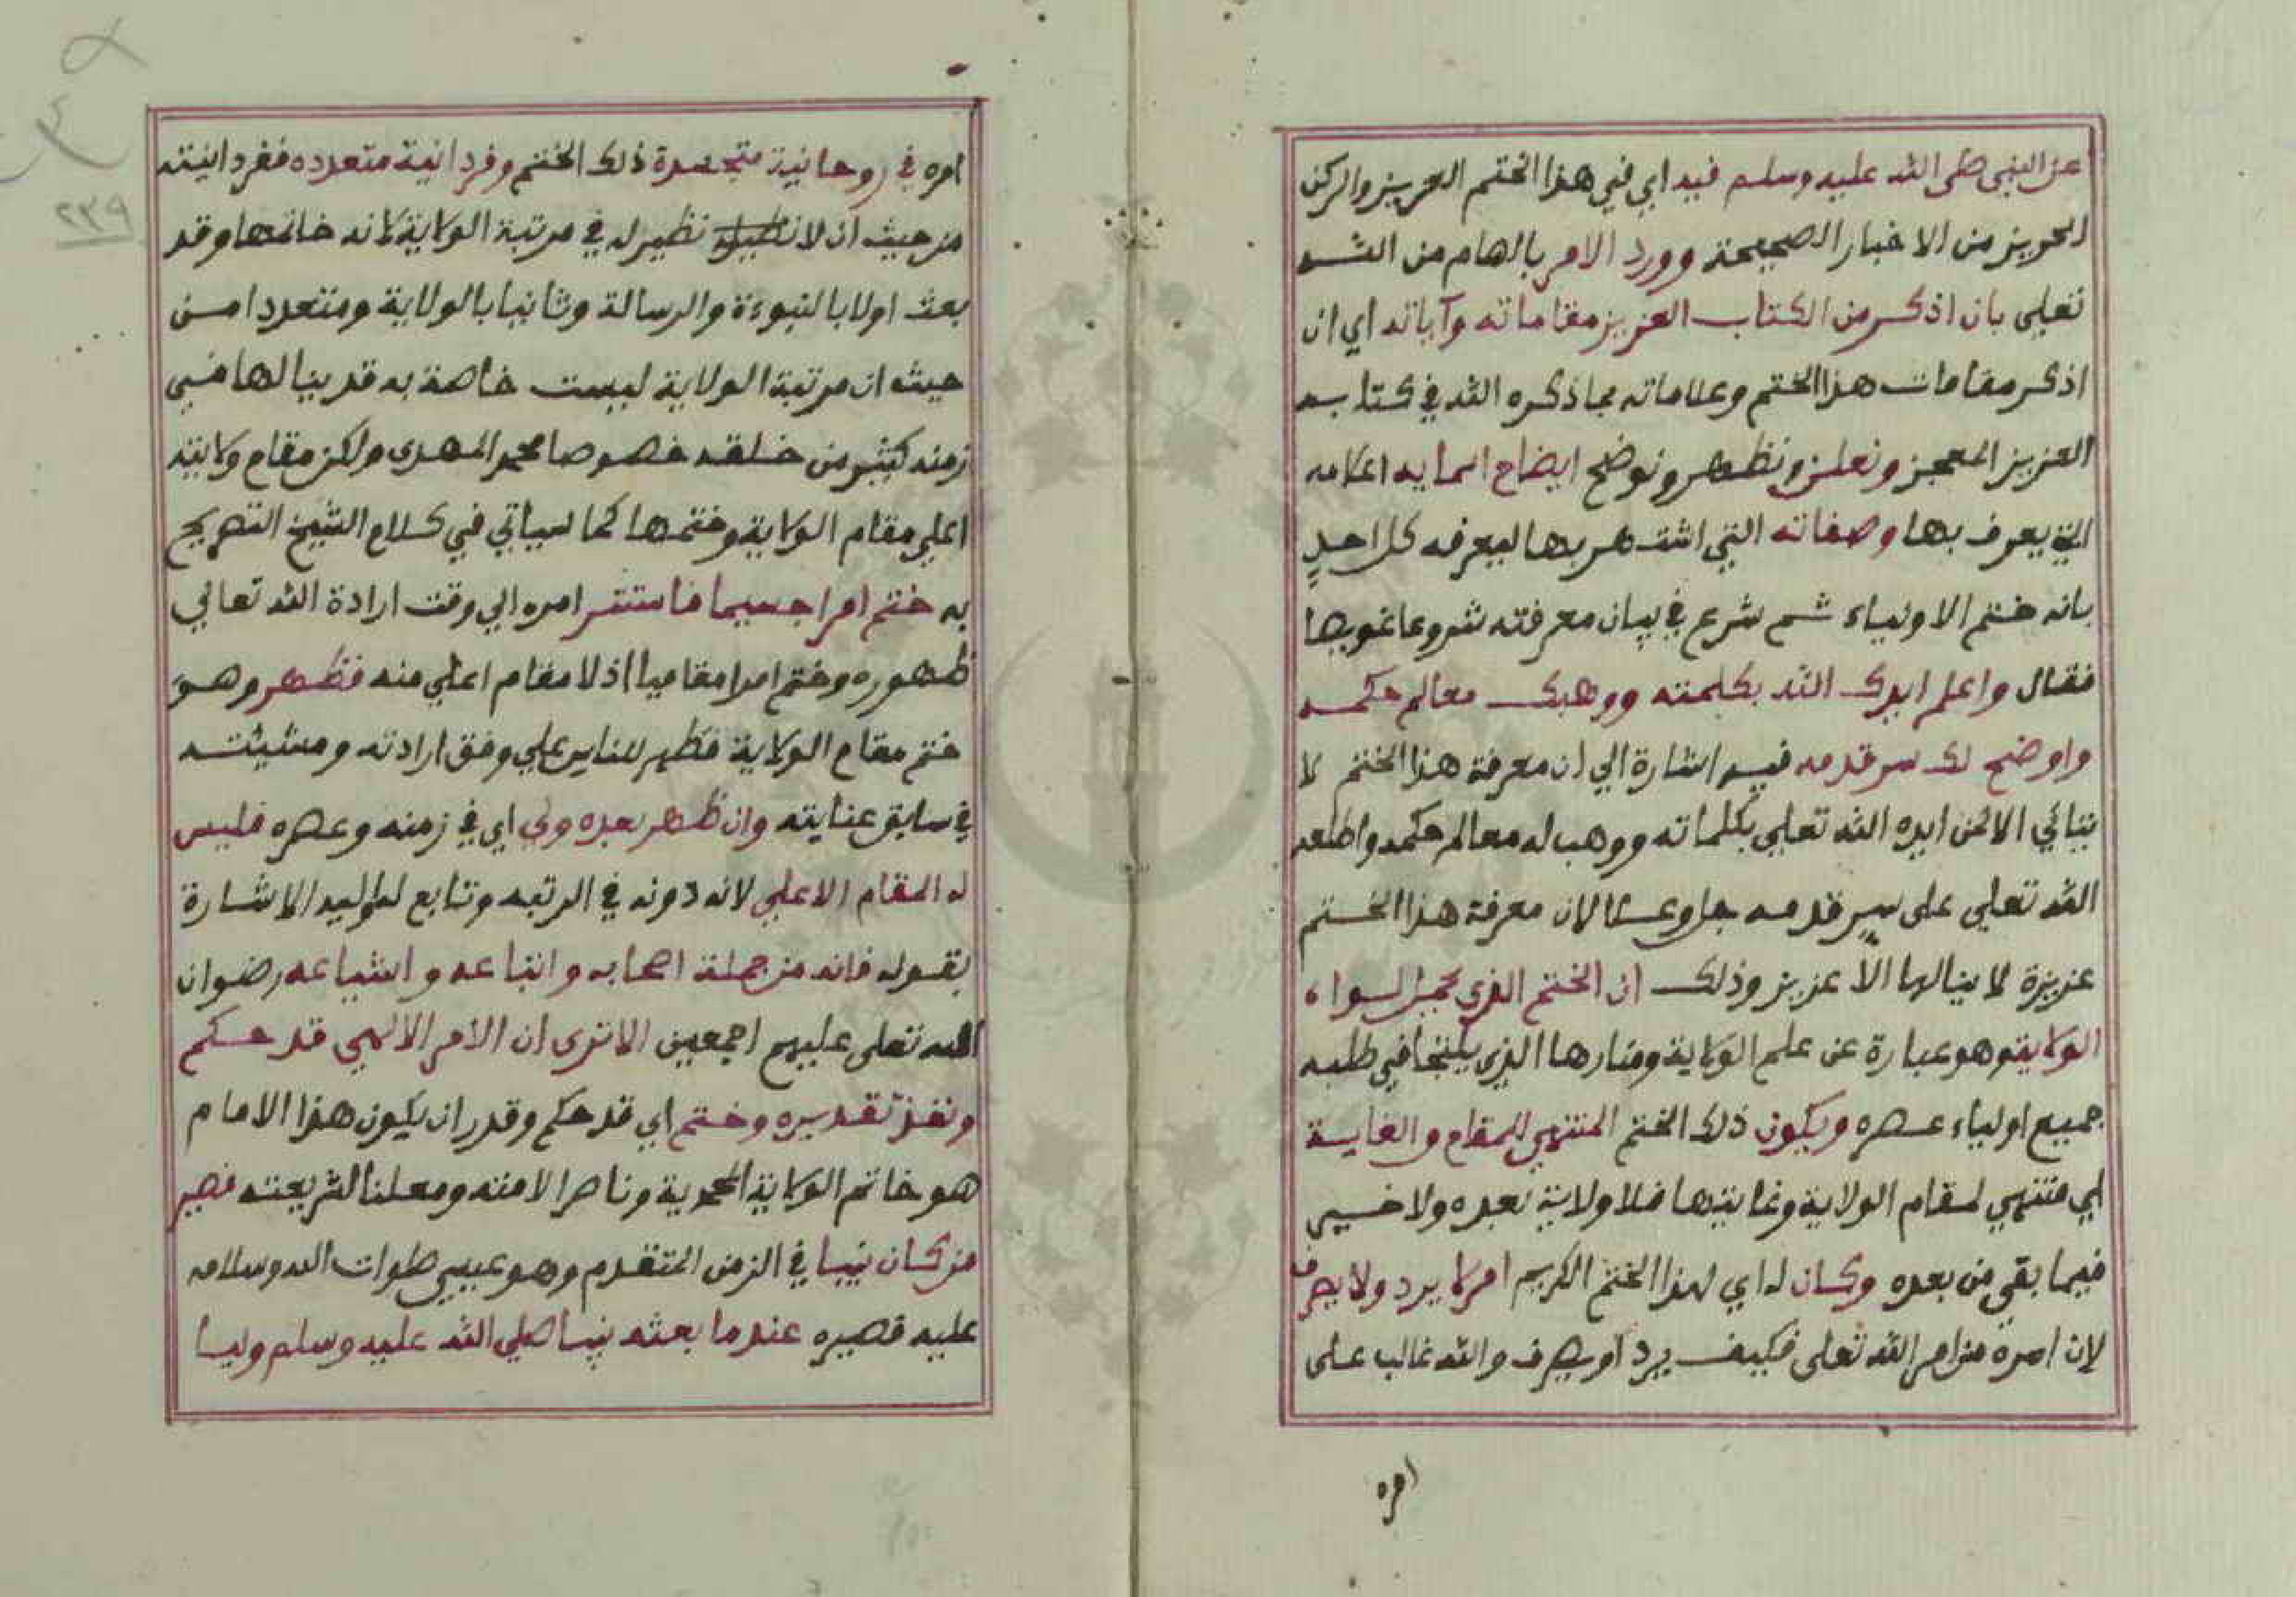 عن النبي صلى الله عليه وسلم فيه اي في هذا الختم العزيز والركن
الحريز من الاخبار الصحيحة وورد الامر بالهام من الله
تعلى بان اذكر من الكتاب العزيز مقاماته وآياته اي ان
اذكر مقامات هذا الختم وعلاماته مما ذكره الله في كتابه
العزيز المعجز ونعلن ونظهر ونوضح ايضاح اسمايه اعلامه
التي يعرف بها وصفاته التي اشتهر بها ليعرفه كل احد
بانه ختم الاولياء ثم شرع في بيان معرفته شروعا
فقال واعلم ايدك الله بكلمته ووهبك معالم حكمه
واوضح لك سر قدمه فيه اشارة الي ان معرفة هذا الختم لا
تتاتي الا لمن ايده الله تعلي بكلماته ووهب له معالم حكمه واطلعه
الله تعلى على سر قدمه جل وعلا لان معرفة هذا الختم
عزيزة لا ينالها الا عزيز وذلك ان الختم الذي يحمل لواء
الولاية وهو عبارة عن علم الولاية ومنارها الذي يلتجا في طلبه
جميع اولياء عصره ويكون ذلك الختم المنتهي للمقام والغاية
اي منتهي لمقام الولاية وغايتها فلا ولاية بعده ولا ختم
فيما بقي من بعده وكان له اي لهذا الختم الكريم امر لا يرد ولا يصرف
لان امره من امر الله تعلى فكيف يرد او يصرف والله غالب على
امره
امره في روحانية متجسدة ذلك الختم وفردانية متعدده ففردانيته
من حيث ان لا نظير له في مرتبة الولاية لانه خاتمها وقد
بعث اولا بالنبوءة والرسالة وثانيا بالولاية ومتعددا من
حيث ان مرتبة الولاية ليست خاصة به قد ينالها في
زمنه كثير من خلقه خصوصا محمد المهدى ولكن مقام ولايته
اعلي مقام الولاية وختمها كما سياتي في كلام الشيخ التصريح
به ختم امرا جسيما فاستتر امره الي وقت ارادة الله تعالي
ظهوره وختم امرا مقاميا اذ لا مقام اعلي منه فظهر وهو
ختم مقام الولاية فظهر للناس علي وفق ارادته ومشيئته
في سابق عنايته وان ظهر بعده ولي اي في زمنه وعصره فليس
له المقام الاعلي لانه دونه في الرتبه وتابع له واليه الاشارة
بقوله فانه من جملة اصحابه واتباعه واشياعه رضوان
الله تعلى عليهم اجمعين الا ترى ان الامر الالهي قد حكم
ونفذ تقديره وختم اي قد حكم وقدر ان يكون هذا الامام
هو خاتم الولاية المحمدية وناصرا لامته ومعلنا لشريعته فصير
من كان نبيا في الزمن المتقدم وهو عيسي صلوات الله وسلامه
عليه فصيره عندما بعثه نبينا صلي الله عليه وسلم وليا
٢٣٩